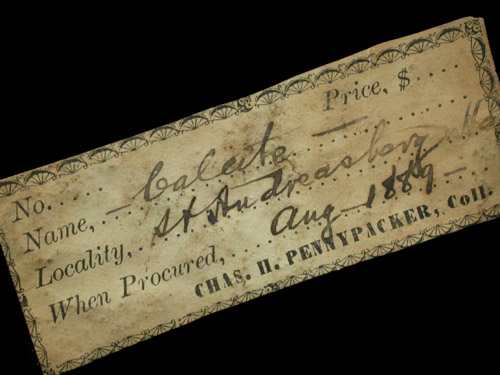 No..... Price, $ ....
Name, – Calcite –
Locality, St Andreasberg
When Procured, Aug 1889 –
CHAS. H. PENNYPACKER, Coll.